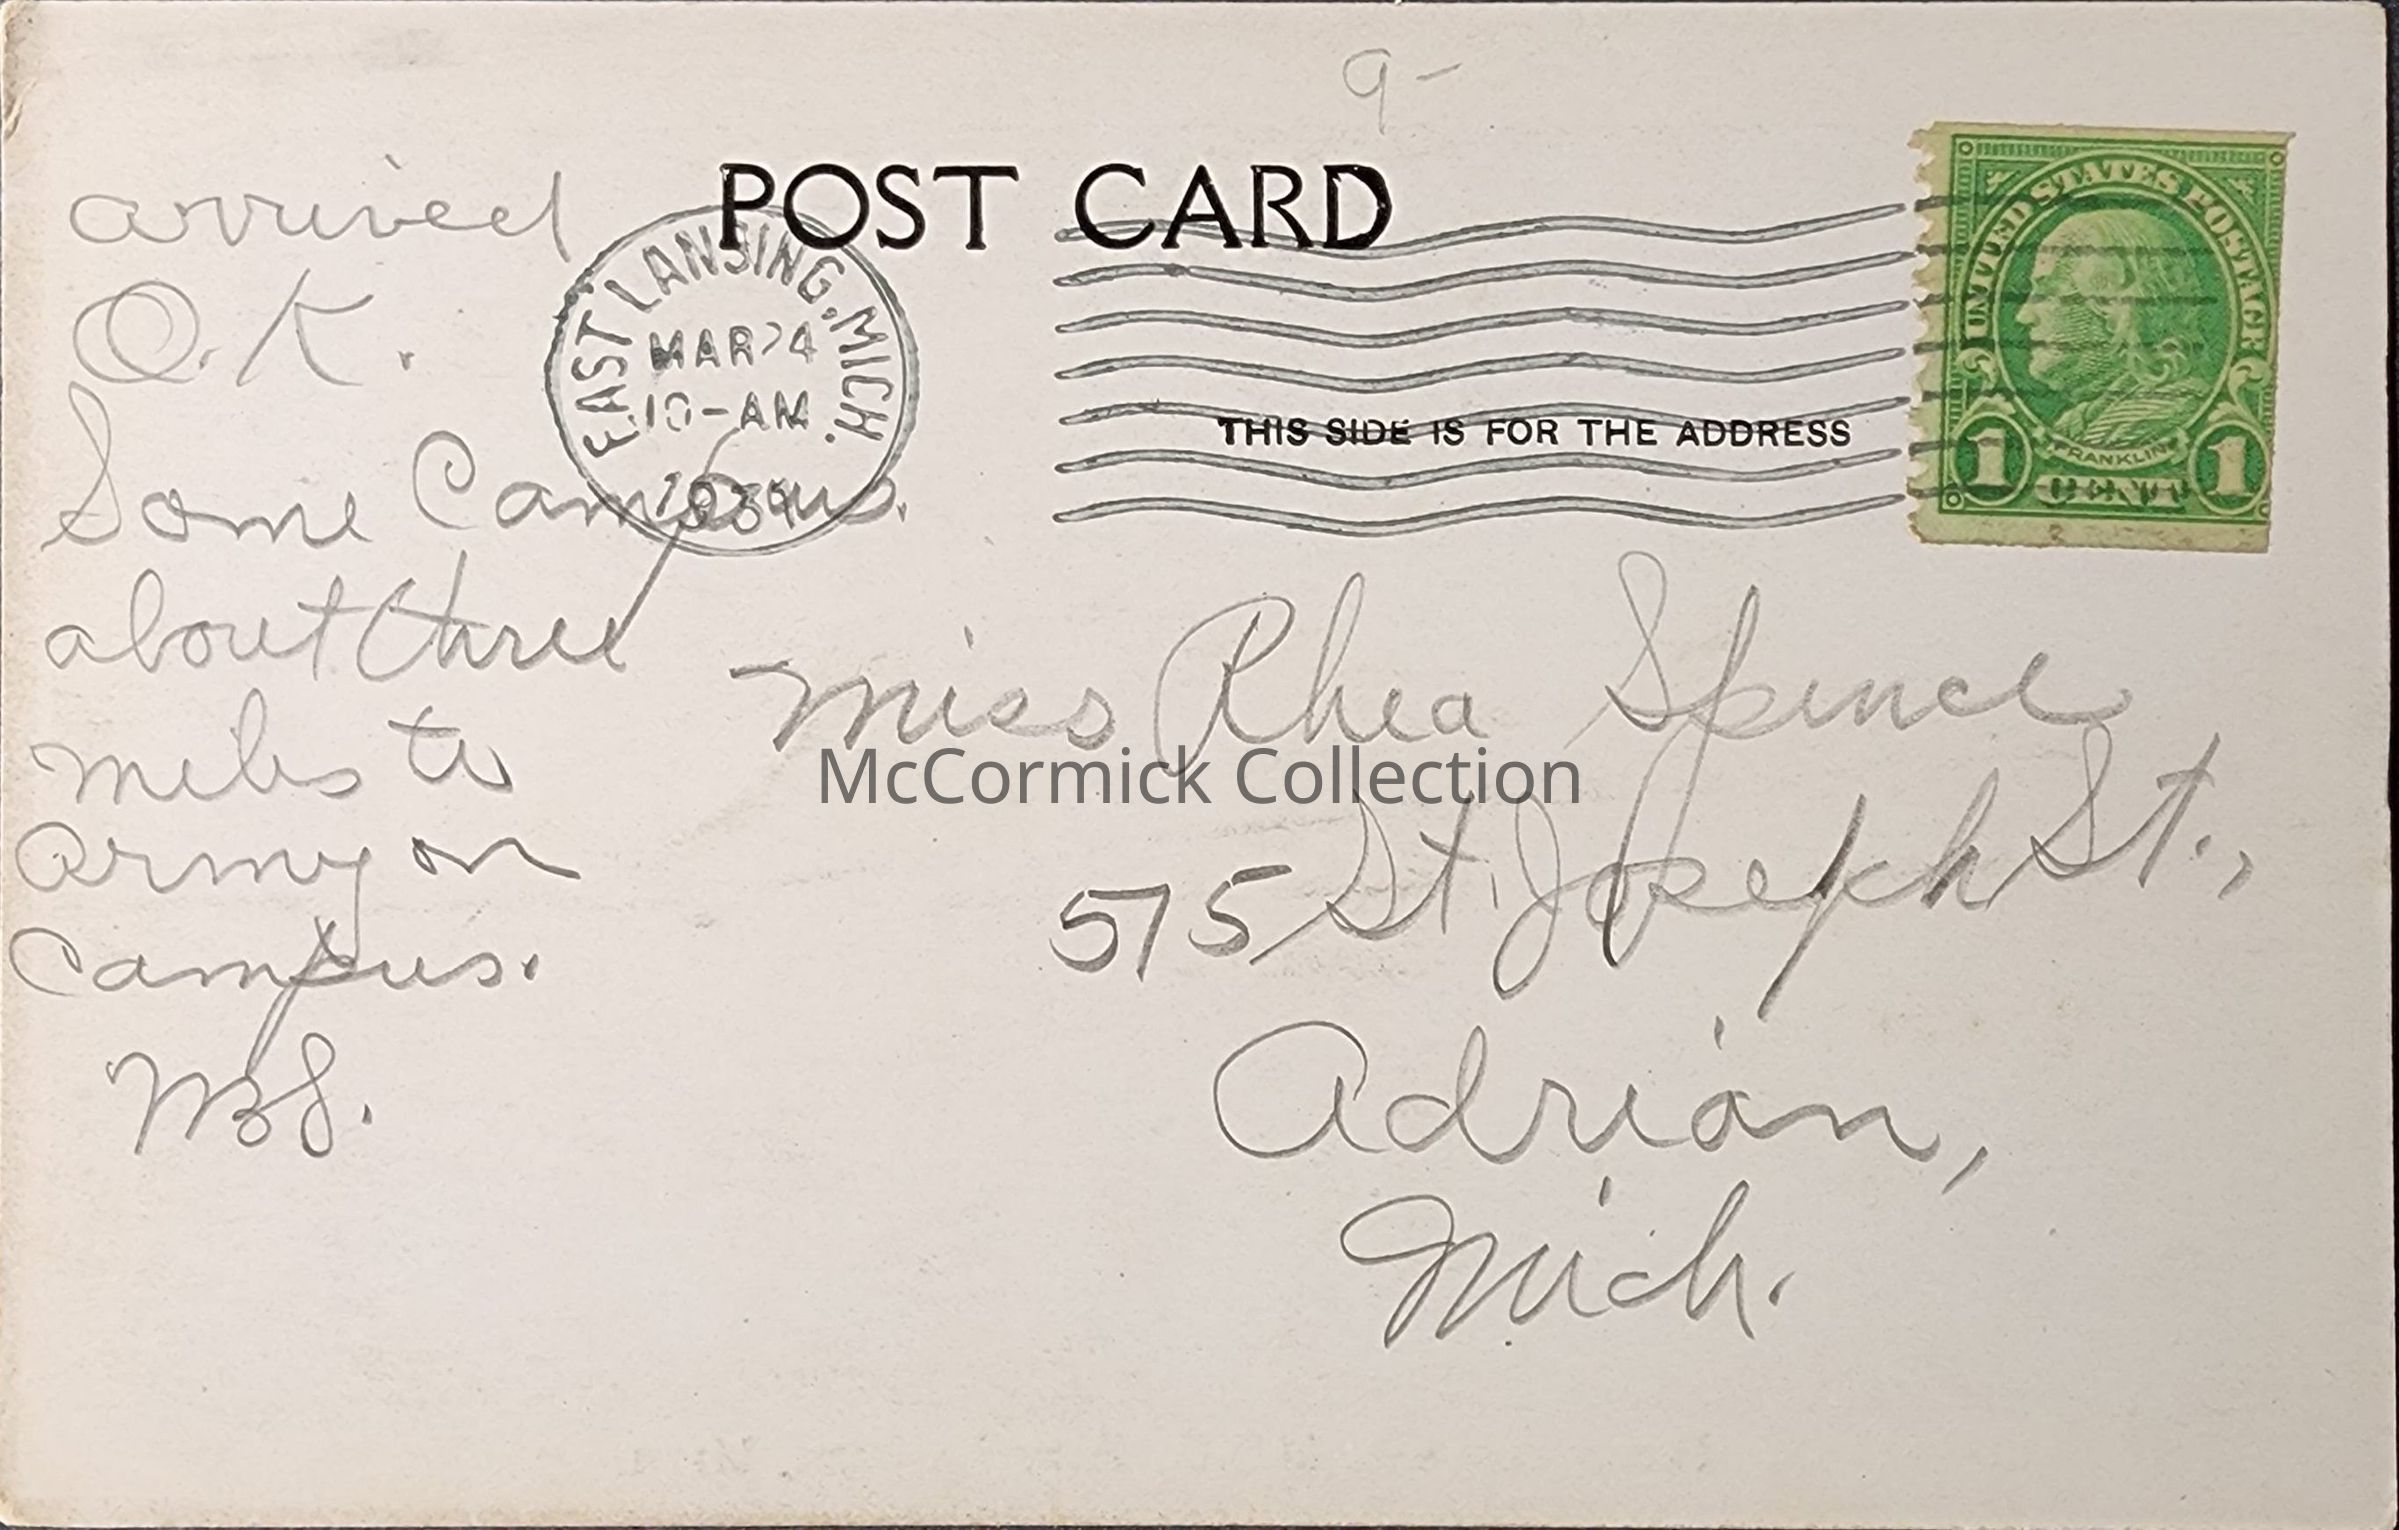 9-
POST CARD
THIS SIDE IS FOR THE ADDRESS
EAST LANSING, MICH.
MAR 24
10-AM
UNITED STATES POSTAGE
FRANKLIN
1 CENT 1
arrived
O.K.
Some Campus.
about three
miles to
army on
Campus.
Miss Rhea Spence
McCormick Collection
575 St. Joseph St.,
Adrian,
Mich.